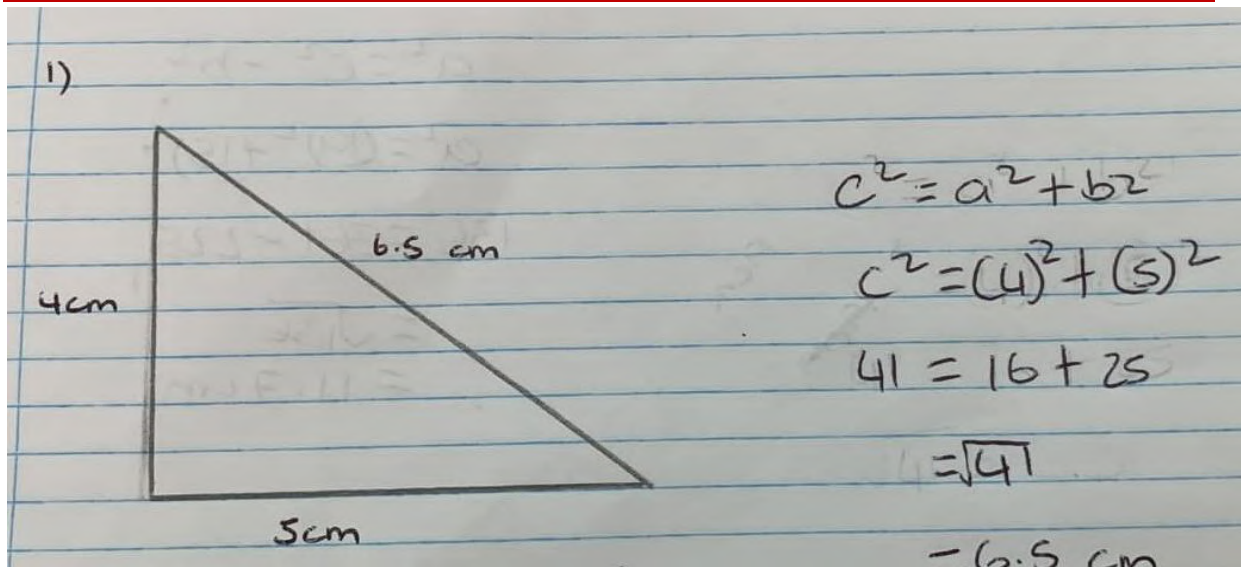 1)
6.5 cm
4cm
5cm
c² = a² + b2
c² = (4)² + (5)²
41 = 16 + 25
= √41
- 6.5 cm